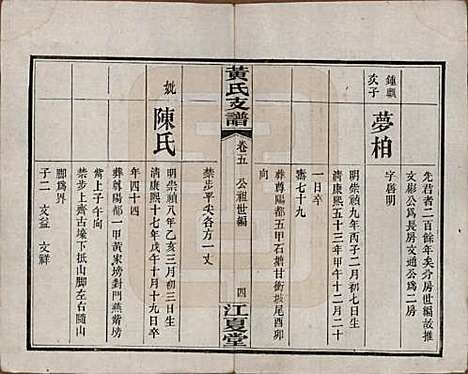 鍾麒
次子
夢柏
先君者二百餘年矣分房世編故推
文彪公為長房文通公為二房
字啓明
明崇禎九年丙子二月初七日生
清康熙五十三年甲午十二月二十
一日卒
壽七十九
葬尊陽都五甲石塘甘衝坡尾酉卯
向
黃氏支譜
卷五
公祖世編
四
江夏堂
禁步平尖各方一丈
妣
陳氏
明崇禎八年乙亥三月初三日生
清康熙十七年戊午十月十九日卒
年四十四
葬尊陽都一甲黃家塝對門燕觜塝
觜上子午向
禁步上齊古塚下抵山腳左右隨山
腳為界
子二 文益 文祥